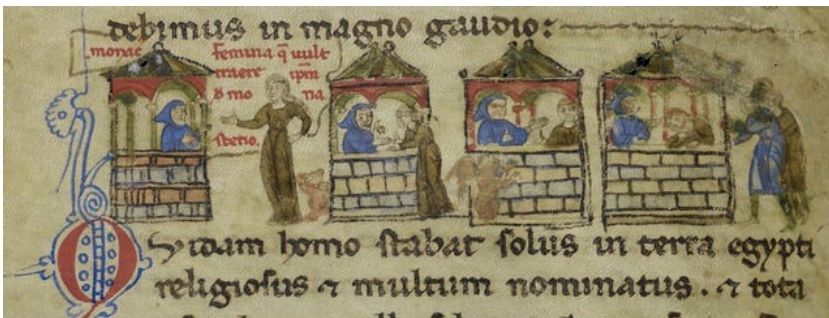 debimus in magno gaudio:
monac
femina q̄ uult
traere ip̄m
d mo na
sterio.
Quidam homo stabat solus in terra egypti
religiosus ⁊ multum nominatus. ⁊ tota